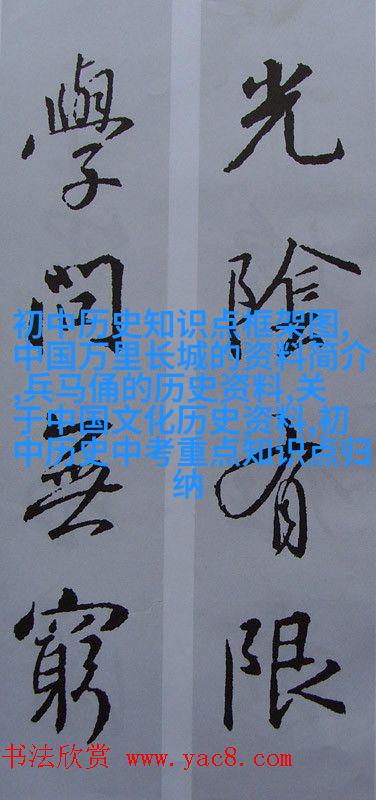 光陰有限
學問無窮
初中历史知识点框架图,
中国万里长城的资料简介
,兵马俑的历史资料,关
于中国文化历史资料,初
中历史中考重点知识点归
纳
书法欣赏 www.yac8.com